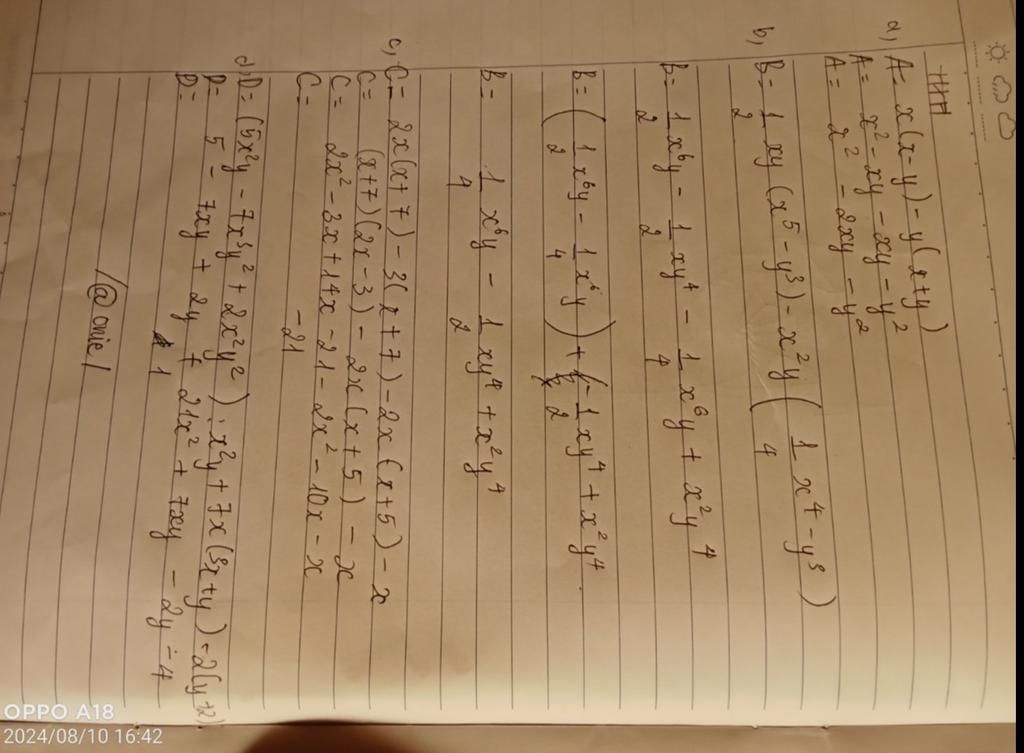 a, A= x(x-y) - y(x+y)
A= x² - xy - xy - y²
A= x² - 2xy - y²
b, B= 1/2 xy (x⁵ - y³) - x²y (1/4 x⁴ - y³)
B= 1/2 x⁶y - 1/2 xy⁴ - 1/4 x⁶y + x²y⁴
B= (1/2 x⁶y - 1/4 x⁶y) + (-1/2 xy⁴ + x²y⁴
B= 1/4 x⁶y - 1/2 xy⁴ + x²y⁴
c, C= 2x(x+7) - 3(x+7) - 2x(x+5) - x
C= (x+7)(2x-3) - 2x(x+5) - x
C= 2x² - 3x + 14x - 21 - 2x² - 10x - x
C= -21
d, D= (5x²y - 7x³y² + 2x²y²) : x²y + 7x(3x+y) - 2(y+2)
D= 5 - 7xy + 2y + 21x² + 7xy - 2y - 4
D= 1
/@onie/
OPPO A18
2024/08/10 16:42